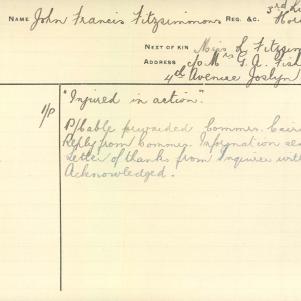 NAME John Francis Fitzsimmons REG. &C. 3rd
NEXT OF KIN Miss L.
ADDRESS c/o Mrs G. A.
4th Avenue Joslyn
"Injured in action".
1/P
P/Cable forwarded Commr.
Reply from Commr. Information
Letter of thanks from Inquirer
Acknowledged.